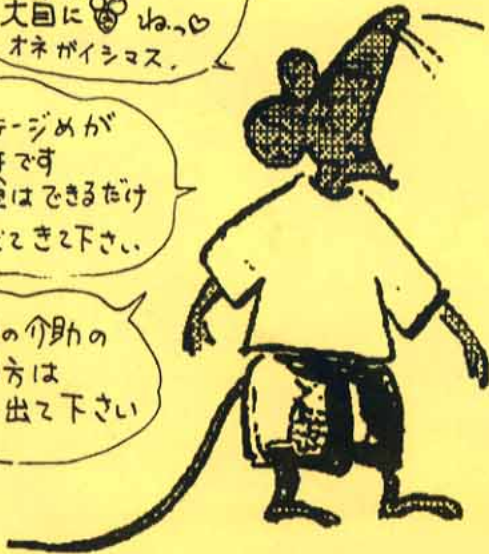 大目に ねっ♡
オネガイシマス.
テージめが
です
はできるだけ
てきて下さい
の介助の
方は
出て下さい